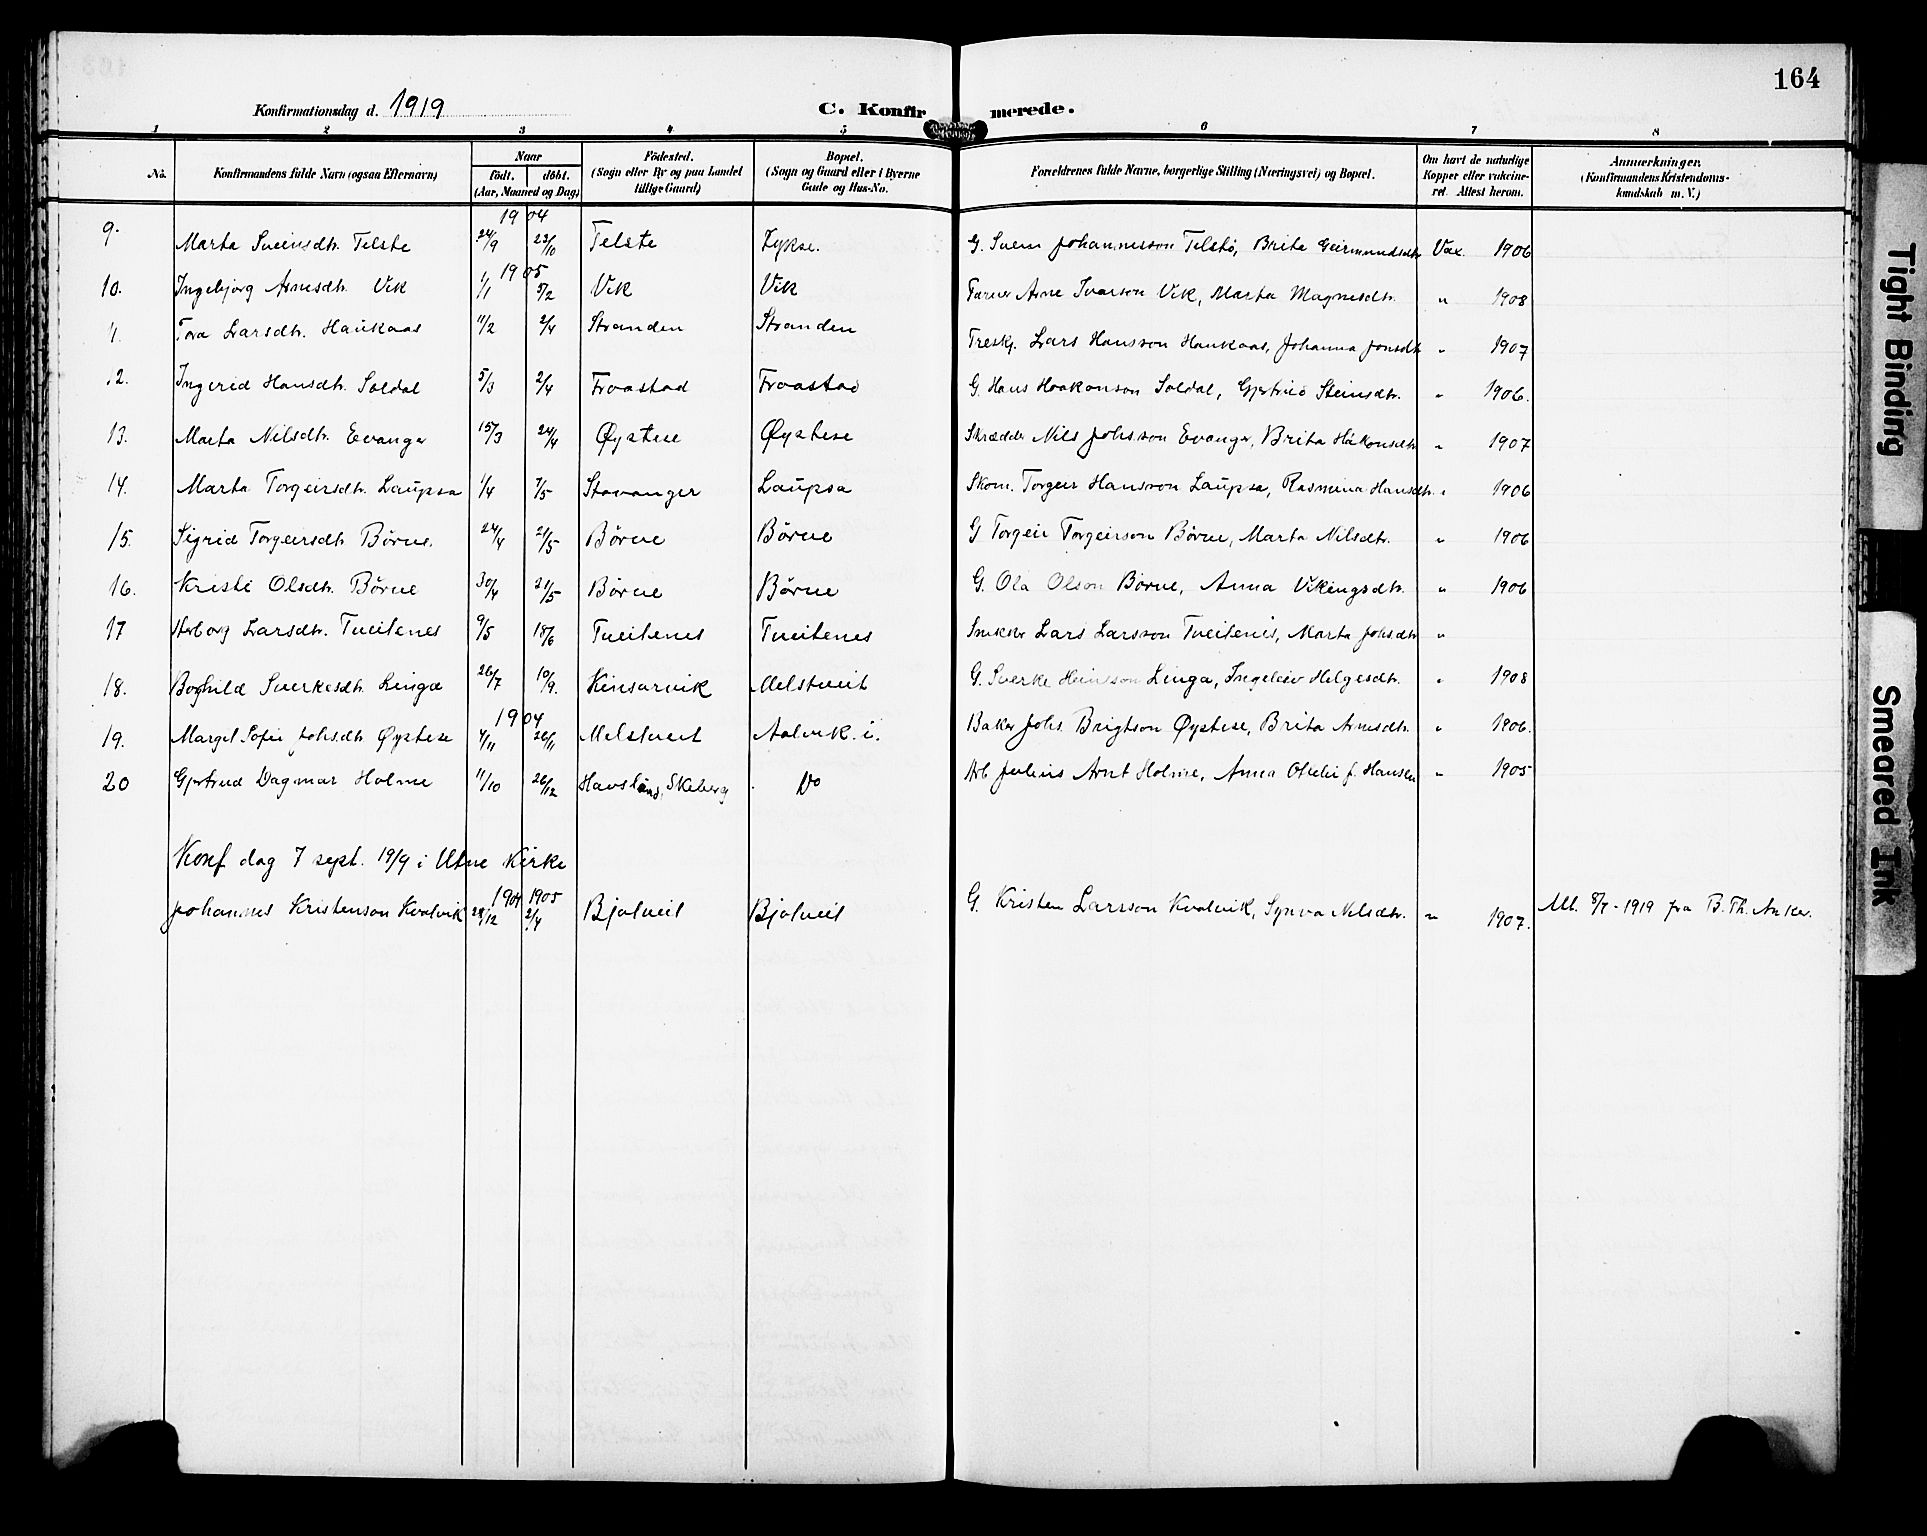 164
Konfirmationsdag d. 1919
C. Konfirmerede.
1 2 3 4 5 6 7 8
No. Konfirmandens fulde Navn (ogsaa Efternavn) Naar födt. döbt. (Aar, Maaned og Dag) Födested. (Sogn eller By og paa Landet tillige Gaard) Bopæl. (Sogn og Gaard eller i Byerne Gade og Hus-No. Forældrenes fulde Navne, borgerlige Stilling (Næringsvei) og Bopæl. Om havt de naturlige Kopper eller vaccineret. Attest herom. Anmærkninger. (Konfirmandens Kristendomskundskab m. V.)
1904
9. Marta Sveinsdtr. Telste 24/9 23/10 Telste Zykse. G. Svein Johannesson Telstø, Brita Geirmundsdtr Vax. 1906
1905
10. Ingebjørg Arnesdtr. Vik 1/1 5/2 Vik Vik Farver Arne Ivarson Vik, Marta Magnesdtr. " 1908
11. Tora Larsdtr. Haukaas 11/2 2/4 Stranden Stranden Treskj. Lars Hansson Haukaas, Johanna Jonsdtr " 1907
12. Ingerid Hansdtr. Soldal 5/3 2/4 Froastad Froastad G. Hans Haakonson Soldal, Gjertrud Steinsdtr. " 1906.
13. Marta Nilsdtr. Evanger 15/3 24/4 Øystese Øystese Skrædder Nils Johsson Evanger, Brita Håkonsdtr " 1907
14. Marta Torgeirsdtr. Laupsa 1/4 7/5 Stavanger Laupsa Skom. Torgeir Hansson Laupsa, Rasmina Hansdtr. " 1906
15. Sigrid Torgeirsdtr Børve. 24/4 21/5 Børve Børve G Torgeir Torgeirson Børve, Marta Nilsdtr. " 1906
16. Kristi Olsdtr. Børve 30/4 21/5 Børve Børve G. Ola Olson Børve, Anna Vikingsdtr. " 1906
17 Herborg Larsdtr. Tveitenes 9/5 18/6 Tveitenes Tveitenes Snekker Lars Larsson Tveitenes, Marta Johsdtr "
18. Borghild Sverkesdtr Linga 26/7 10/9. Kinsarvik Melstveit G. Sverke Heinsson Linga, Ingeleiv Helgesdtr. " 1908
1904
19. Margit Sofie Johsdtr Øystese 4/11 26/11 Melstveit Aalvik. i. Baker Johs. Brigtson Øystese, Brita Arnesdtr. " 1906.
20 Gjertrud Dagmar Holme 11/10 26/12 Havslund, Skeberg Do Arb Julius Arnt Holme, Anna Otelie f. Hansen " 1905
Konf dag 7 sept. 1919 i Utne Kirke
1904 1905
Johannes Kristenson Kvalvik 28/12 2/4 Bjolveit Bjolveit G. Kristen Larsson Kvalvik, Synva Nilsdtr. " 1907. Utl. 8/7-1919 fra B. Th. Anker.
Tight Binding
Smeared Ink